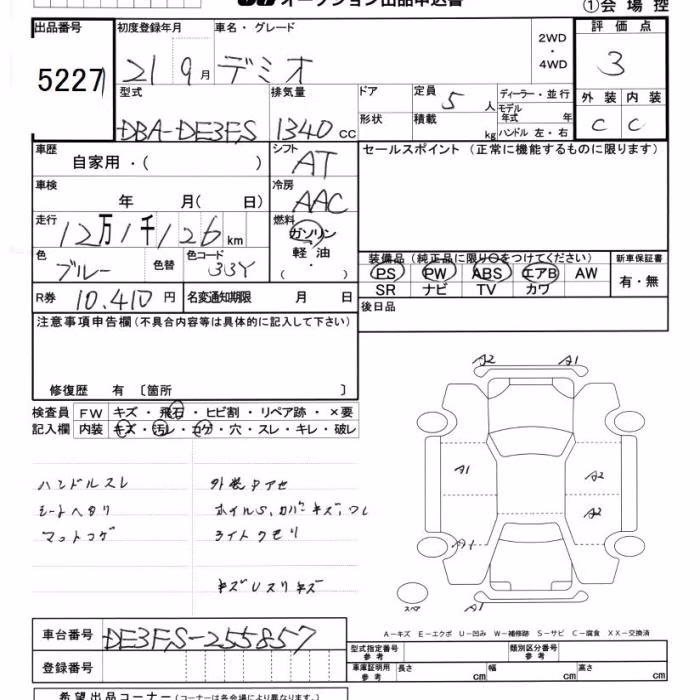 オークション出品申込書
①会場控
出品番号
5227
初度登録年月
21 9月
車名・グレード
デミオ
2WD
・
4WD
評価点
3
型式
DBA-DE3FS
排気量
1340 cc
ドア
定員
5 人
ディーラー・並行
モデル年式 年
形状
積載 kg
ハンドル 左・右
外装 内装
C C
車歴
自家用・( )
シフト
AT
セールスポイント (正常に機能するものに限ります)
車検
年 月( 日)
冷房
AAC
走行
12万1千126 km
燃料
ガソリン
軽油
( ・ )
色
ブルー
色替
色コード
33Y
装備品 (純正品に限り○をつけてください)
PS PW ABS エアB AW
SR ナビ TV カワ
新車保証書
有・無
R券 10,410 円
名変通知期限 月 日
後日品
注意事項申告欄 (不具合内容等は具体的に記入して下さい)
修復歴 有 〔箇所 〕
検査員
記入欄
FW キズ・飛石・ヒビ割・リペア跡・×要
内装 キズ・汚レ・コゲ・穴・スレ・キレ・破レ
ハンドルスレ
シートヘタリ
マットコゲ
外装中アセ
ホイルS,カバーキズ,ワレ
ライトクモリ
キズUスリキズ
A2 A1
A1 A2
A2
A1
スペア A1
車台番号
DE3FS-255857
登録番号
A－キズ E－エクボ U－凹み W－補修跡 S－サビ C－腐食 XX－交換済
型式指定番号
参考
類別区分番号
参考
車庫証明用
参考
長さ cm 幅 cm 高さ cm
希望出品コーナー (コーナーは各会場により異なります。)